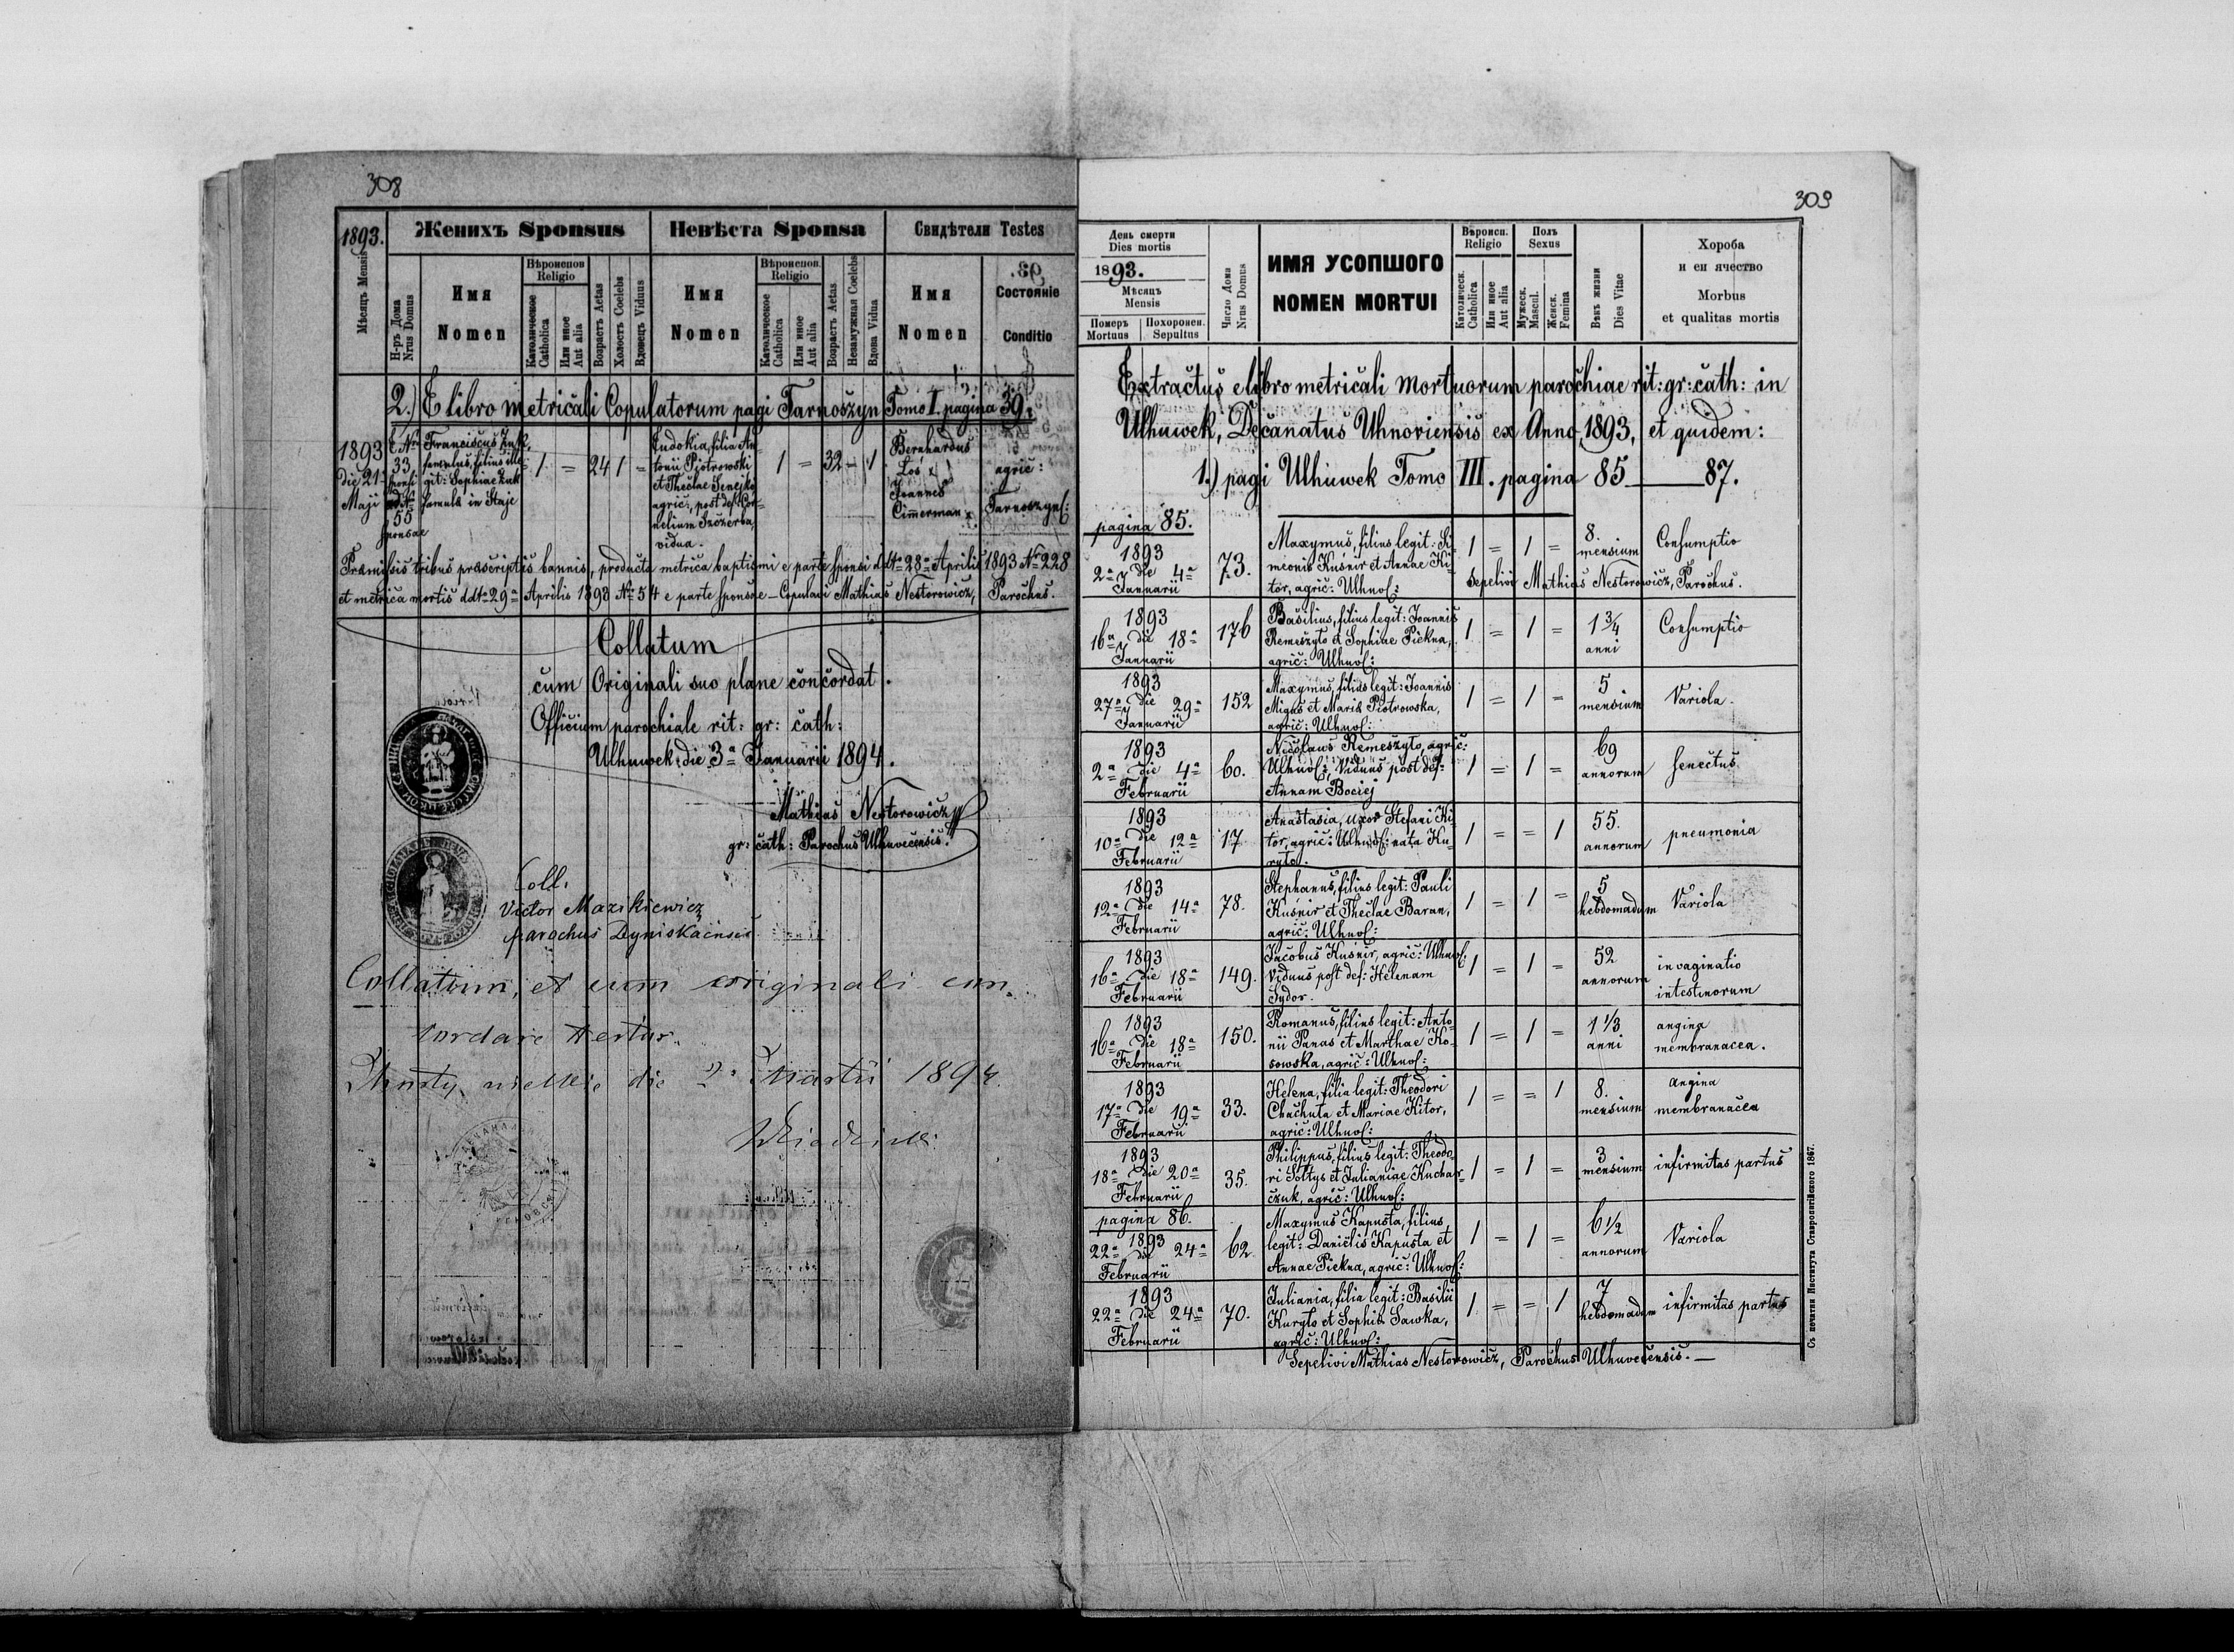 308
1893.
Женихъ Sponsus
Невѣста Sponsa
Свидѣтели Testes
Мѣсяцъ Mensis
Н-ръ Дома
Nrus Domus
Имя
Nomen
Вѣроиспов.
Religio
Католическое
Catholica
Или иное
Aut alia
Возрастъ Aetas
Холостъ Coelebs
Вдовецъ Viduus
Имя
Nomen
Вѣроиспов.
Religio
Католическое
Catholica
Или иное
Aut alia
Возрастъ Aetas
Незамужная Coelebs
Вдова Vidua
Имя
Nomen
Состояніе
Conditio
2.) E libro metricali Copulatorum pagi Tarnoszyn Tomo I. pagina 39.
1893
die 21
Maji
E Nr
33
sponsi
ad Nr
55
sponsae
Franciscus Żuk,
famulus, filius ille-
git: Sophiae Żuk
famula in Staje
1 = 24 1 =
Eudokia, filia An-
tonii Piotrowski
et Theclae Senejko
agric:, post def: Cor-
nelium Szczerba,
vidua.
1 = 32 - 1
Bernhardus
Łoś x
Joannes
Cimerman x
agric:
Tarnoszyn:
Præmissis tribus præscriptis bannis, producta metrica baptismi e parte sponsi ddto 28a Aprilis 1893 Nr 228
et metrica mortis ddto 29a Aprilis 1893 Nr 54 e parte sponsae – Copulavi Mathias Nestorowicz, Parochus.
Collatum
cum Originali suo plane concordat.
Officium parochiale rit: gr: cath:
Ulhuwek die 3a Januarii 1894.
Mathias Nestorowicz
gr: cath: Parochus Ulhuvecensis.
Coll.
Victor Mazikiewicz
parochus Dyniskaensis
Collatum, et cum originali con-
cordare
die 2a Martii 1894.
309
День смерти
Dies mortis
1893.
Мѣсяцъ
Mensis
Померъ
Mortuus
Похоронен.
Sepultus
Число Дома
Nrus Domus
ИМЯ УСОПШОГО
NOMEN MORTUI
Вѣроисп.
Religio
Католическ.
Catholica
Или иное
Aut alia
Полъ
Sexus
Мужеск.
Mascul.
Женск.
Femina
Вѣкъ жизни
Dies Vitae
Хороба
и еи ячество
Morbus
et qualitas mortis
Extractus e libro metricali mortuorum parochiae rit: gr: cath: in
Ulhuwek, Decanatus Uhnoviensis ex Anno 1893, et quidem:
1.) pagi Ulhuwek Tomo III. pagina 85 — 87.
pagina 85.
1893
2a die 4a
Januarii
73.
Maxymus, filius legit: Si-
meonis Kuśnir et Annae Ki-
tor, agric: Ulhuv:
1 = 1 =
8.
mensium
Consumptio
Sepelivi Mathias Nestorowicz, Parochus.
1893
16a die 18a
Januarii
176
Basilius, filius legit: Joannis
Remeszyło et Sophiae Piekna,
agric: Ulhuv:
1 = 1 =
1 3/4
anni
Consumptio
1893
27a die 29a
Januarii
152
Maxymus, filius legit: Joannis
Migus et Mariæ Piotrowska,
agric: Ulhuv:
1 = 1 =
5
mensium
Variola.
1893
2a die 4a
Februarii
60.
Nicolaus Remeszyło, agric:
Ulhuv:, Viduus post def:
Annam Bociej
1 = 1 =
69
annorum
senectus
1893
10a die 12a
Februarii
17
Anastasia, uxor Stefani Ki-
tor, agric: Ulhuv: nata Ku-
ryło.
1 = = 1
55.
annorum
pneumonia
1893
12a die 14a
Februarii
78.
Stephanus, filius legit: Pauli
Kuśnir et Theclae Baran,
agric: Ulhuv:
1 = 1 =
5
hebdomadum
Variola
1893
16a die 18a
Februarii
149.
Jacobus Kuśnir, agric: Ulhuv:
Viduus post def: Helenam
Sydor.
1 = 1 =
52
annorum
invaginatio
intestinorum
1893
16a die 18a
Februarii
150.
Romanus, filius legit: Anto-
nii Panas et Marthae Ko-
sowska, agric: Ulhuv:
1 = 1 =
1 1/3
anni
angina
membranacea.
1893
17a die 19a
Februarii
33.
Helena, filia legit: Theodori
Chachuta et Mariae Kitor,
agric: Ulhuv:
1 = = 1
8.
mensium
angina
membranacea
1893
18a die 20a
Februarii
35.
Philippus, filius legit: Theodo-
ri Sołtys et Julianiae Kuchar-
czuk, agric: Ulhuv:
1 = 1 =
3
mensium
infirmitas partus
pagina 86.
1893
22a die 24a
Februarii
62
Maxymus Kapusta, filius
legit: Danielis Kapusta et
Annae Piekna, agric: Ulhuv:
1 = 1 =
6 1/2
annorum
Variola
1893
22a die 24a
Februarii
70.
Juliania, filia legit: Basilii
Kuryło et Sophiæ Sawka,
agric: Ulhuv:
1 = = 1
7
hebdomadum
infirmitas partus
Sepelivi Mathias Nestorowicz, Parochus Ulhuvecensis.—
Съ печатни Института Ставропигійского 1867.